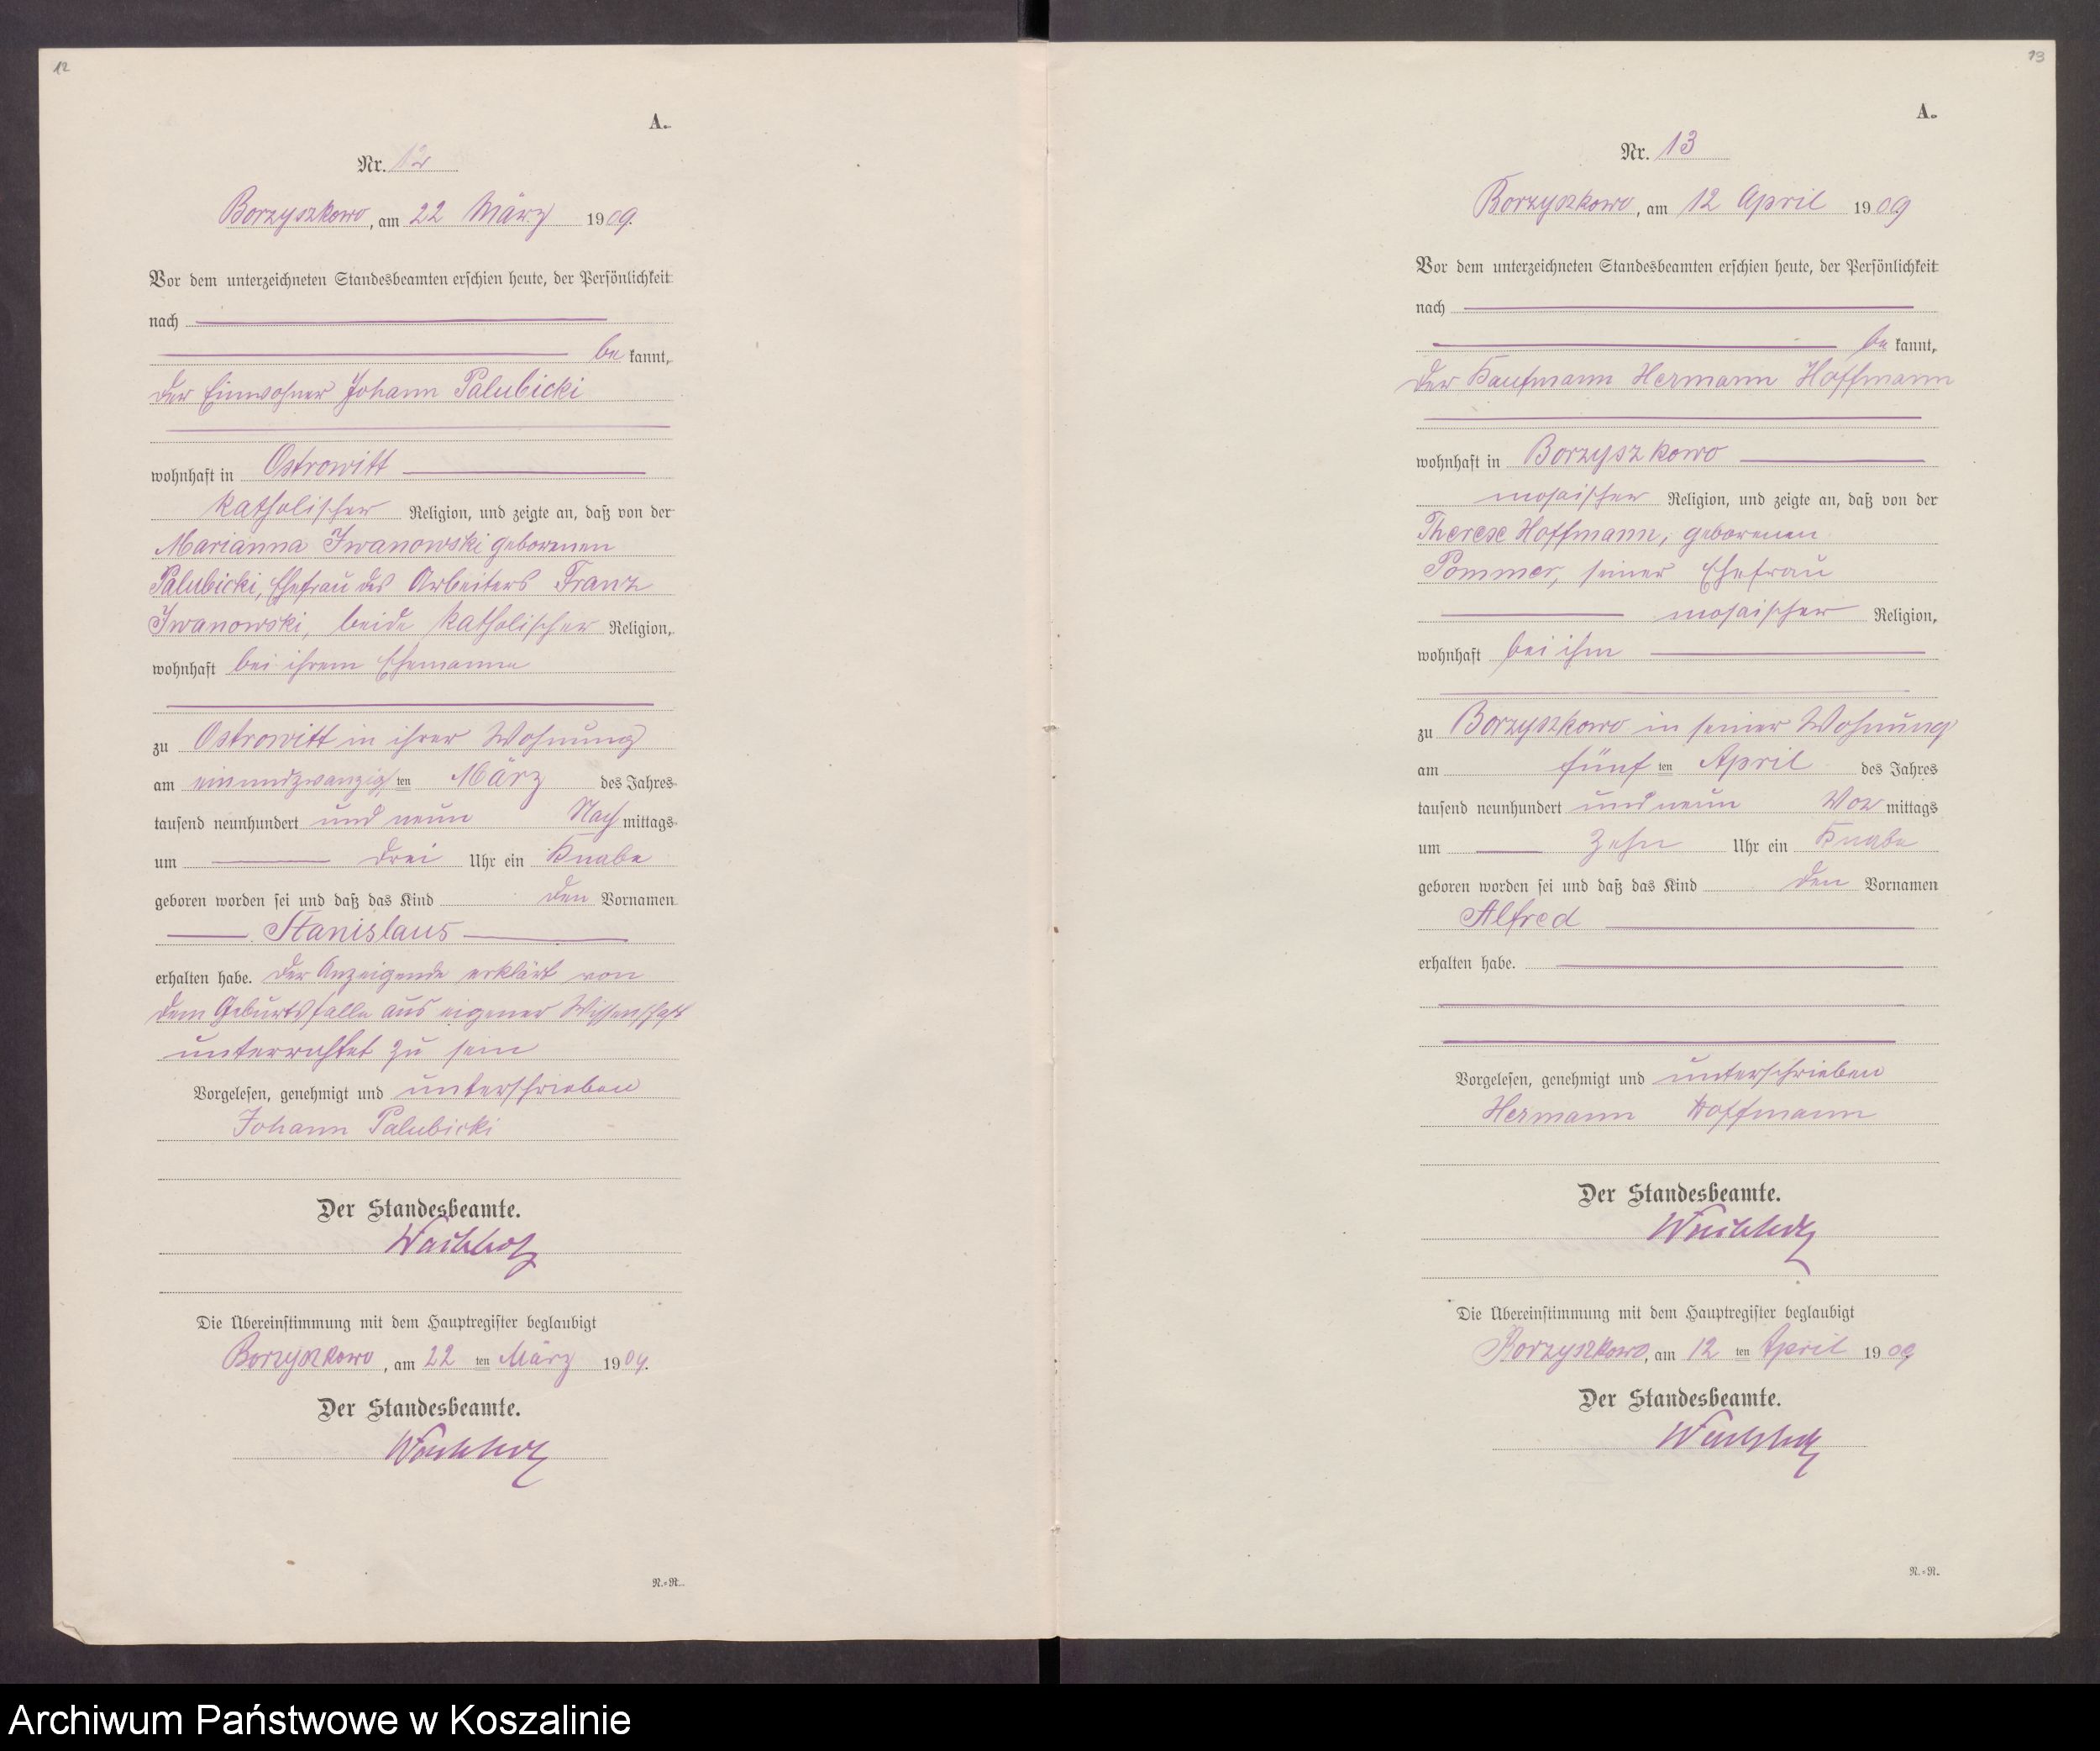 12
A.
Nr. 12
Borzyszkowo, am 22 März 1909.
Vor dem unterzeichneten Standesbeamten erschien heute, der Persönlichkeit
nach
be kannt,
der Einwohner Johann Palubicki
wohnhaft in Ostrowitt
katholischer Religion, und zeigte an, daß von der
Marianna Iwanowski geborenen
Palubicki, Ehefrau des Arbeiters Franz
Iwanowski, beide katholischer Religion,
wohnhaft bei ihrem Ehemanne
zu Ostrowitt in ihrer Wohnung
am einundzwanzigsten März des Jahres
tausend neunhundert und neun Nach mittags
um drei Uhr ein Knabe
geboren worden sei und daß das Kind den Vornamen
Stanislaus
erhalten habe. Der Anzeigende erklärt von
dem Geburtsfalle aus eigener Wissenschaft
unterrichtet zu sein
Vorgelesen, genehmigt und unterschrieben
Johann Palubicki
Der Standesbeamte.
Die Übereinstimmung mit dem Hauptregister beglaubigt
Borzyszkowo, am 22 ten März 1909.
Der Standesbeamte.
N.=R.
13
A.
Nr. 13
Borzyszkowo, am 12 April 1909
Vor dem unterzeichneten Standesbeamten erschien heute, der Persönlichkeit
nach
be kannt,
der Kaufmann Hermann Hoffmann
wohnhaft in Borzyszkowo
mosaischer Religion, und zeigte an, daß von der
Therese Hoffmann, geborenen
Pommer, seiner Ehefrau
mosaischer Religion,
wohnhaft bei ihm
zu Borzyszkowo in seiner Wohnung
am fünf ten April des Jahres
tausend neunhundert und neun Vor mittags
um zehn Uhr ein Knabe
geboren worden sei und daß das Kind den Vornamen
Alfred
erhalten habe.
Vorgelesen, genehmigt und unterschrieben
Hermann Hoffmann
Der Standesbeamte.
Die Übereinstimmung mit dem Hauptregister beglaubigt
Borzyszkowo, am 12 ten April 1909
Der Standesbeamte.
N.=R.
Archiwum Państwowe w Koszalinie